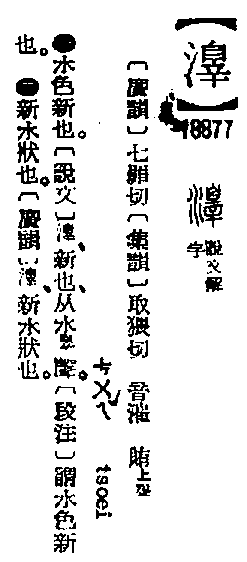 【㵏】
18877
㵏 說文解字
〔廣韻〕七罪切〔集韻〕取猥切 音漼 賄上聲
ㄘㄨㄟˇ tsoei
㊀水色新也。〔說文〕㵏、新也、从水辠聲。〔段注〕謂水色新
也。㊁新水狀也。〔廣韻〕㵏、新水狀也。